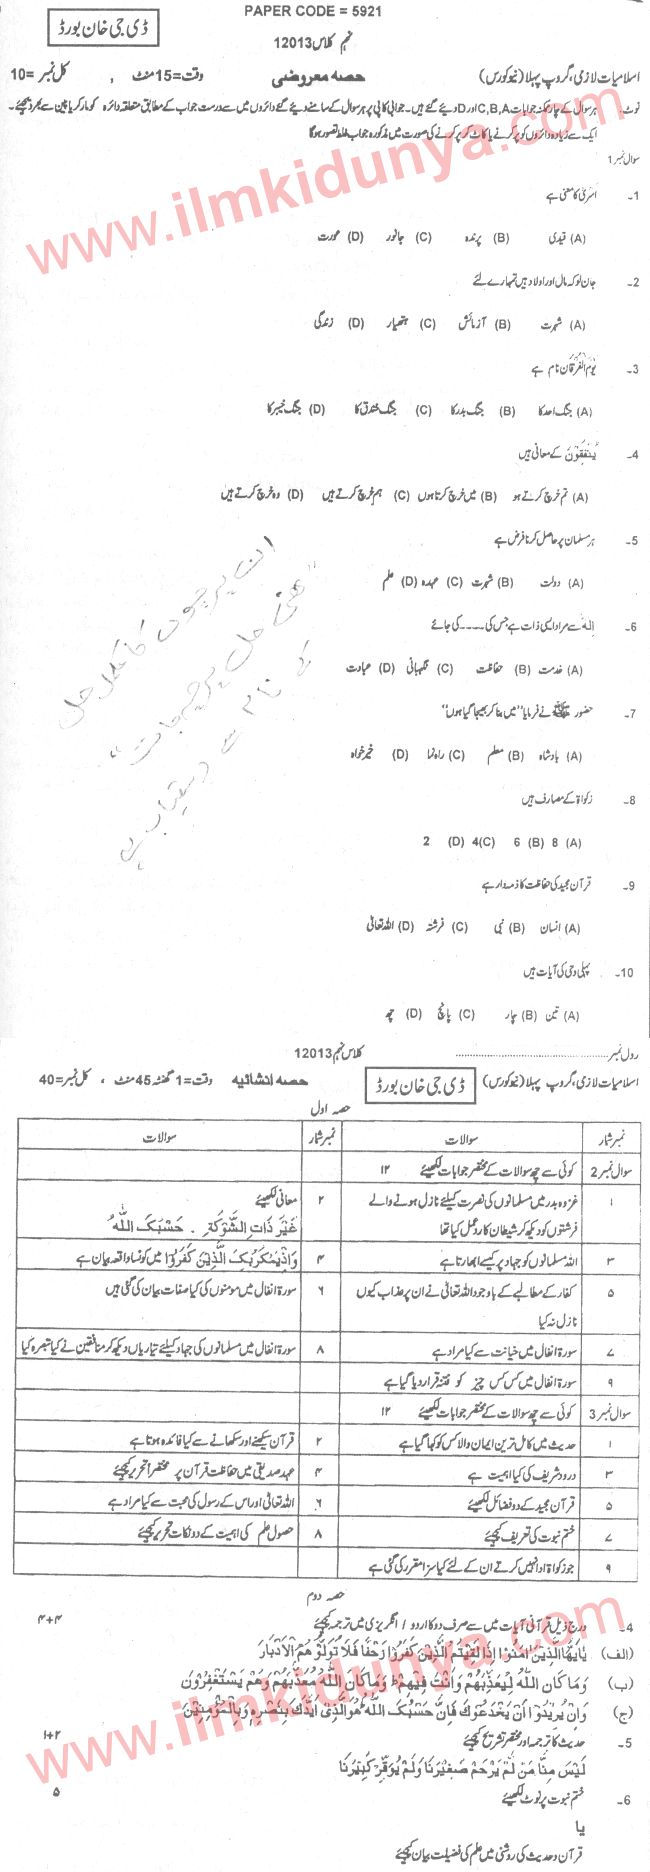 PAPER CODE = 5921
ڈی جی خان بورڈ
نہم کلاس 12013
اسلامیات لازمی، گروپ پہلا (نیو کورس) حصہ معروضی وقت=15 منٹ ، کل نمبر=10
نوٹ۔ ہر سوال کے چار ممکنہ جوابات C,B,A اور D دیئے گئے ہیں۔ جوابی کاپی پر ہر سوال کے سامنے دیئے گئے دائروں میں سے درست جواب کے مطابق متعلقہ دائرہ کو مارکر یا پین سے بھر دیجئے۔
ایک سے زیادہ دائروں کو پر کرنے یا کاٹ کر پر کرنے کی صورت میں مذکورہ جواب غلط تصور ہو گا
سوال نمبر 1
www.ilmkidunya.com
1۔ اسریٰ کا معنی ہے
(A) قیدی (B) پرندہ (C) جانور (D) عورت
2۔ جان لو کہ مال اور اولاد ہیں تمہارے لئے
(A) شہرت (B) آزمائش (C) ہتھیار (D) زندگی
3۔ یوم الفرقان نام ہے
(A) جنگ احد کا (B) جنگ بدر کا (C) جنگ خندق کا (D) جنگ خیبر کا
4۔ ینفقون کے معانی ہیں
(A) تم خرچ کرتے ہو (B) میں خرچ کرتا ہوں (C) ہم خرچ کرتے ہیں (D) وہ خرچ کرتے ہیں
5۔ ہر مسلمان پر حاصل کرنا فرض ہے
(A) دولت (B) شہرت (C) عہدہ (D) علم
6۔ الٰہ سے مراد ایسی ذات ہے جس کی ---- کی جائے
(A) خدمت (B) حفاظت (C) نگہبانی (D) عبادت
7۔ حضور ﷺ نے فرمایا "میں بنا کر بھیجا گیا ہوں"
(A) بادشاہ (B) معلم (C) راہ نما (D) خیر خواہ
8۔ زکواۃ کے مصارف ہیں
(A) 8 (B) 6 (C) 4 (D) 2
9۔ قرآن مجید کی حفاظت کا ذمہ دار ہے
(A) انسان (B) نبی (C) فرشتہ (D) اللہ تعالیٰ
10۔ پہلی وحی کی آیات ہیں
(A) تین (B) چار (C) پانچ (D) چھ
ان پرچوں کا مکمل حل
"حل پرچہ جات"
کے نام سے دستیاب ہے
رول نمبر ........................ کلاس نہم 12013
اسلامیات لازمی، گروپ پہلا (نیو کورس) ڈی جی خان بورڈ حصہ انشائیہ وقت=1 گھنٹہ 45 منٹ ، کل نمبر=40
حصہ اول
نمبر شمار سوالات نمبر شمار سوالات
سوال نمبر 2 کوئی سے چھ سوالات کے مختصر جوابات لکھیئے ۱۲
۱ غزوہ بدر میں مسلمانوں کی نصرت کیلئے نازل ہونے والے فرشتوں کو دیکھ کر شیطان کا ردعمل کیا تھا
۲ معانی لکھیئے
غَیْرَ ذَاتِ الشَّوْکَةِ ۔ حَسْبَکَ اللّٰهُ
۳ اللہ مسلمانوں کو جہاد پر کیسے ابھارتا ہے
۴ وَاِذْیَمْکُرُبِکَ الَّذِیْنَ کَفَرُوْا میں کونسا واقعہ بیان ہے
۵ کفار کے مطالبے کے باوجود اللہ تعالیٰ نے ان پر عذاب کیوں نازل نہ کیا
۶ سورۃ انفال میں مومنوں کی کیا صفات بیان کی گئی ہیں
۷ سورۃ انفال میں خیانت سے کیا مراد ہے
۸ سورۃ انفال میں مسلمانوں کی جہاد کیلئے تیاریاں دیکھ کر منافقین نے کیا تبصرہ کیا
۹ سورۃ انفال میں کس کس چیز کو فتنہ قرار دیا گیا ہے
سوال نمبر 3 کوئی سے چھ سوالات کے مختصر جوابات لکھیئے ۱۲
۱ حدیث میں کامل ترین ایمان والا کس کو کہا گیا ہے
۲ قرآن سیکھنے اور سکھانے سے کیا فائدہ ہوتا ہے
۳ درود شریف کی کیا اہمیت ہے
۴ عہد صدیقی میں حفاظت قرآن پر مختصراً تحریر کیجئے
۵ قرآن مجید کے دو فضائل لکھیئے
۶ اللہ تعالیٰ اور اس کے رسول کی محبت سے کیا مراد ہے
۷ ختم نبوت کی تعریف کیجئے
۸ حصول علم کی اہمیت کے دو نکات تحریر کیجئے
۹ جو زکواۃ ادا نہیں کرتے ان کے لئے کیا سزا مقرر کی گئی ہے
حصہ دوم
4۔ درج ذیل قرآنی آیات میں سے صرف دو کا اردو / انگریزی میں ترجمہ کیجئے ۴+۴
(الف) یٰاَیُّهَا الَّذِیْنَ اٰمَنُوْا اِذَا لَقِیْتُمُ الَّذِیْنَ کَفَرُوْا زَحْفًا فَلَا تُوَلُّوْ هُمُ الْاَدْبَارَ
(ب) وَمَا کَانَ اللّٰهُ لِیُعَذِّبَهُمْ وَاَنْتَ فِیْهِمْ ط وَمَا کَانَ اللّٰهُ مُعَذِّبَهُمْ وَهُمْ یَسْتَغْفِرُوْنَ
(ج) وَاِنْ یُّرِیْدُوْا اَنْ یَّخْدَعُوْکَ فَاِنَّ حَسْبَکَ اللّٰهُ هُوَ الَّذِیْ اَیَّدَکَ بِنَصْرِهٖ وَبِالْمُؤْمِنِیْنَ
5۔ حدیث کا ترجمہ اور مختصر تشریح کیجئے ۱+۲
لَیْسَ مِنَّا مَنْ لَّمْ یَرْحَمْ صَغِیْرَنَا وَلَمْ یُوَقِّرْ کَبِیْرَنَا
6۔ ختم نبوت پر نوٹ لکھیئے ۵
یا
قرآن و حدیث کی روشنی میں علم کی فضیلت بیان کیجئے
www.ilmkidunya.com